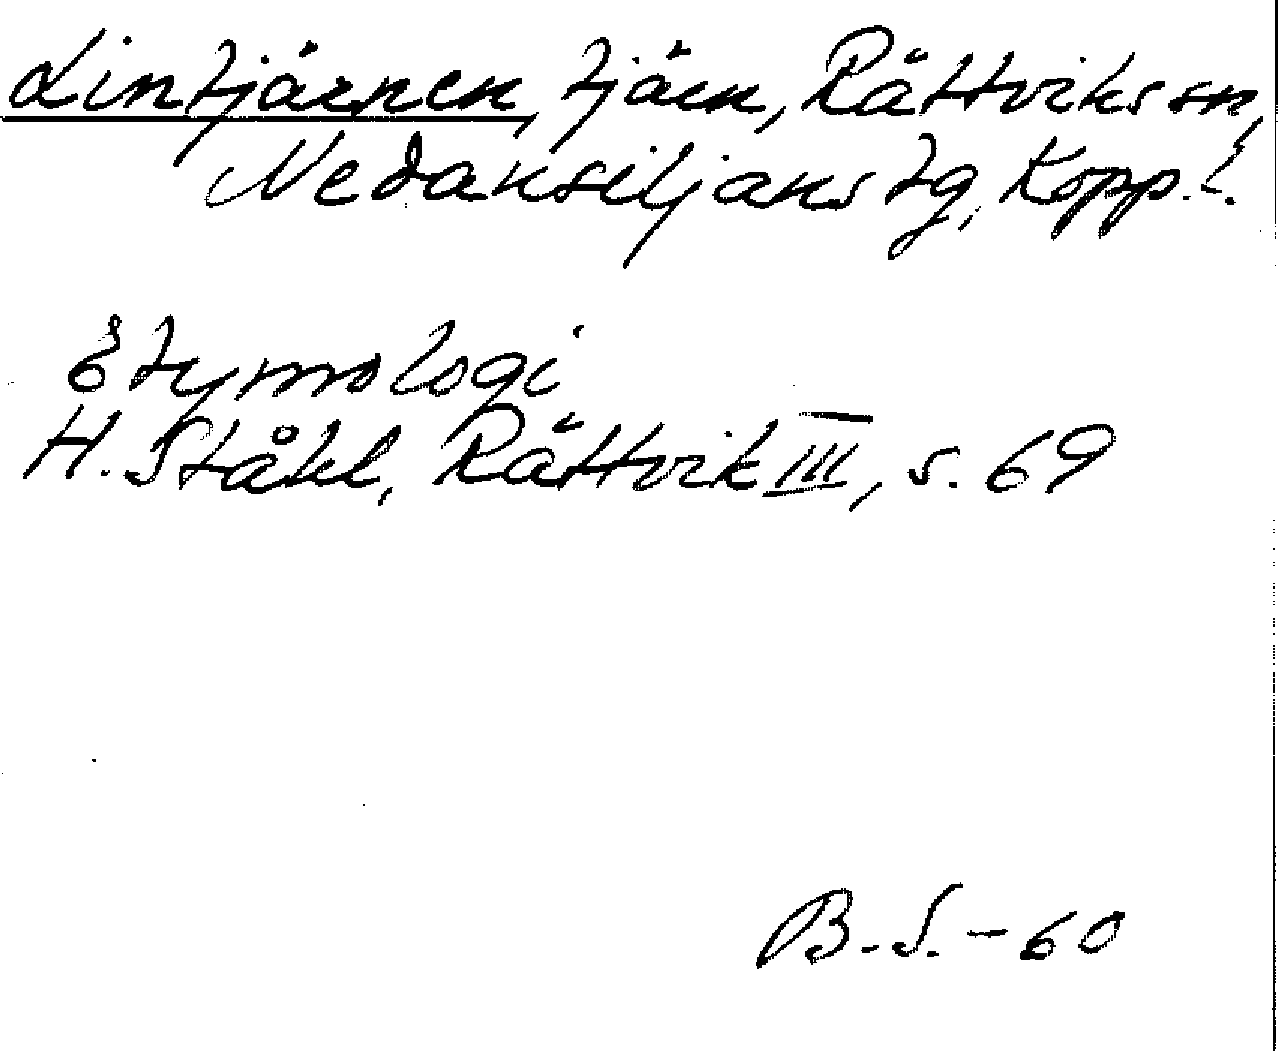 Lintjärnen, tjärn, Rättviks sn,
Nedansiljans tg, Kopp. l.
Etymologi
H. Ståhl, Rättvik III, s. 69
B.S. - 60